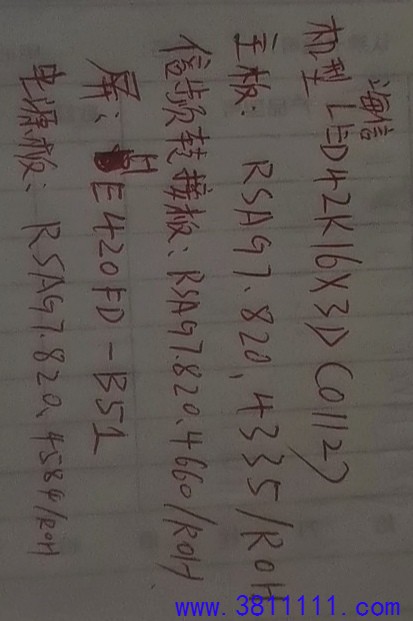 海信
机型 LED42K16X3D(0112)
主板: RSAG7.820.4335/ROH
倍频转换板: RSAG7.820.4660/ROH
屏: HE420FD-B51
电源板: RSAG7.820.4584/ROH
www.3811111.com